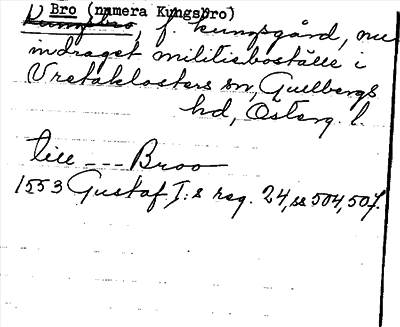 Bro (namera Kungsbro)
Kungsbro, f. kungsgård, nu
indraget militieboställe i
Vreta klosters sn, Gullbergs
hd, Österg. l.
till --- Broo
1553 Gustaf I:s reg. 24, ss 504, 507.